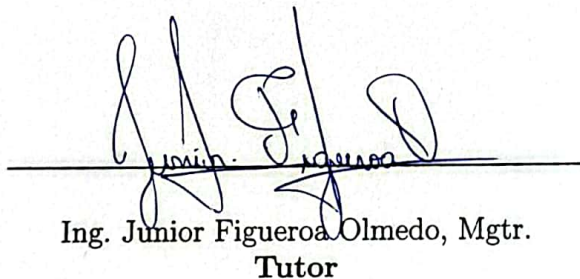 Junior Figueroa O
Ing. Junior Figueroa Olmedo, Mgtr.
Tutor